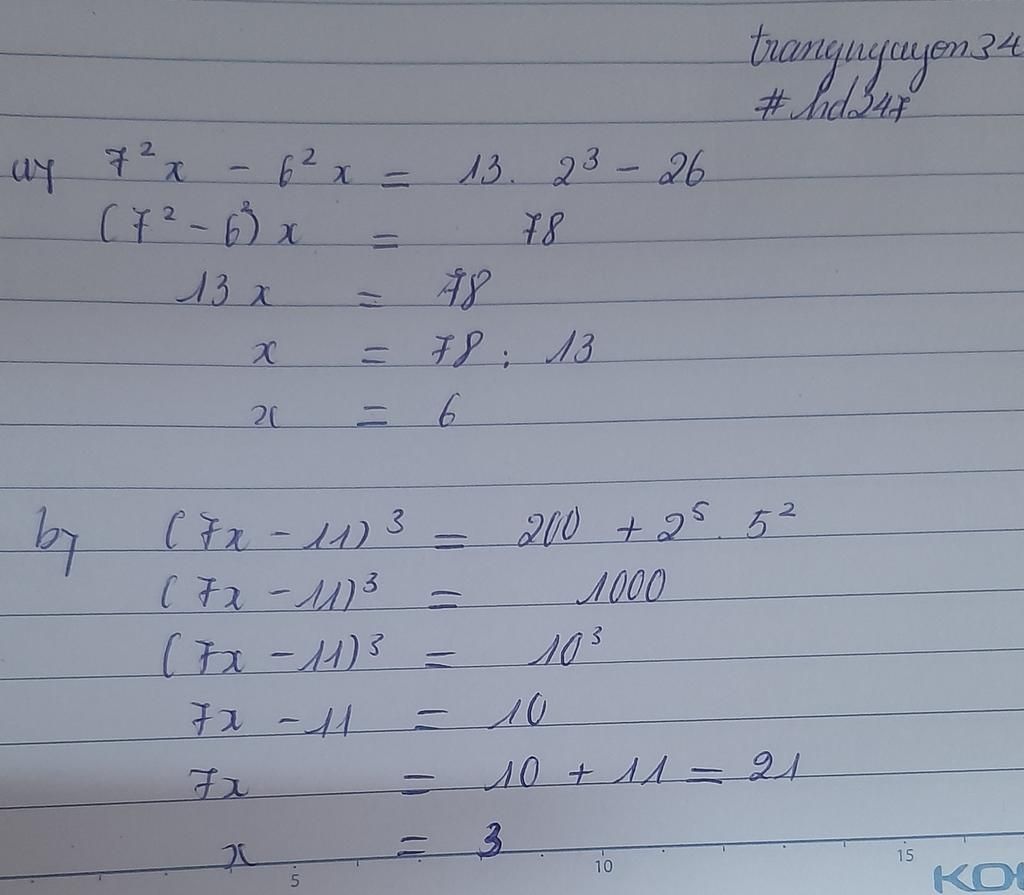 trangnguyen34
#hd247
a, 7²x - 6²x = 13. 2³ - 26
(7² - 6²)x = 78
13x = 78
x = 78 : 13
x = 6
b, (7x - 11)³ = 200 + 2⁵. 5²
(7x - 11)³ = 1000
(7x - 11)³ = 10³
7x - 11 = 10
7x = 10 + 11 = 21
x = 3
5 10 15